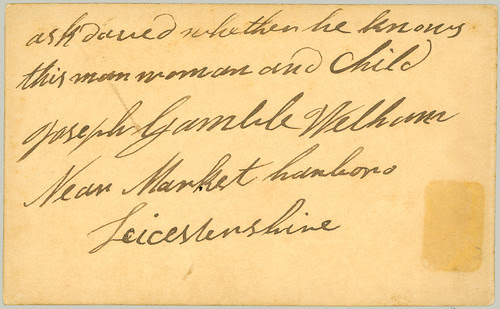 ask daved whether he knows
this man woman and Child
Joseph Gamble Welham
Near Market harboro
Leicestershire